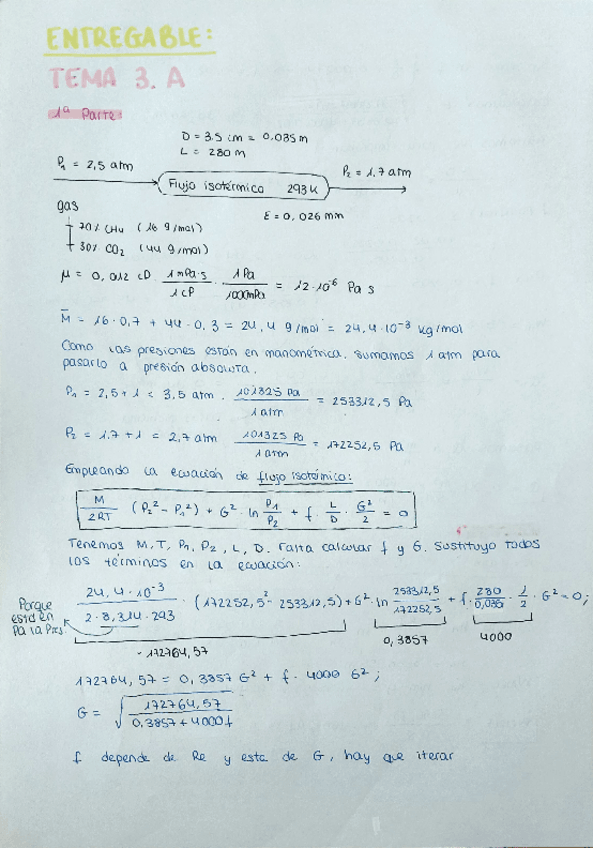 ENTREGABLE:
TEMA 3. A
1ª Parte:
D = 3.5 cm = 0.035 m
L = 280 m
P₁ = 2,5 atm
Flujo isotérmico 293 K
P₂ = 1.7 atm
gas
ε = 0,026 mm
70% CH₄ (16 g/mol)
30% CO₂ (44 g/mol)
μ = 0,012 cP · 1 mPa·s / 1 cP · 1 Pa / 1000 mPa = 12·10⁻⁶ Pa s
M̅ = 16·0,7 + 44·0,3 = 24,4 g/mol = 24,4·10⁻³ kg/mol
Como las presiones están en manométrica, sumamos 1 atm para
pasarlo a presión absoluta.
P₁ = 2,5 + 1 = 3,5 atm · 101325 Pa / 1 atm = 253312,5 Pa
P₂ = 1.7 + 1 = 2,7 atm 101325 Pa / 1 atm = 172252,5 Pa
Empleando la ecuación de flujo isotérmico:
M / 2RT (P₂² - P₁²) + G² · ln P₁ / P₂ + f · L / D · G² / 2 = 0
Tenemos M, T, P₁, P₂, L, D. Falta calcular f y G. Sustituyo todos
los términos en la ecuación:
24,4·10⁻³ / 2·8,314·293 · (172252,5² - 253312,5) + G² · ln 253312,5 / 172252,5 + f · 280 / 0,035 · 1 / 2 · G² = 0;
Porque
está en
Pa la Pres.
- 172764,57
0,3857
4000
172764,57 = 0,3857 G² + f · 4000 G²;
G = √ 172764,57 / 0,3857 + 4000f
f depende de Re y esta de G, hay que iterar